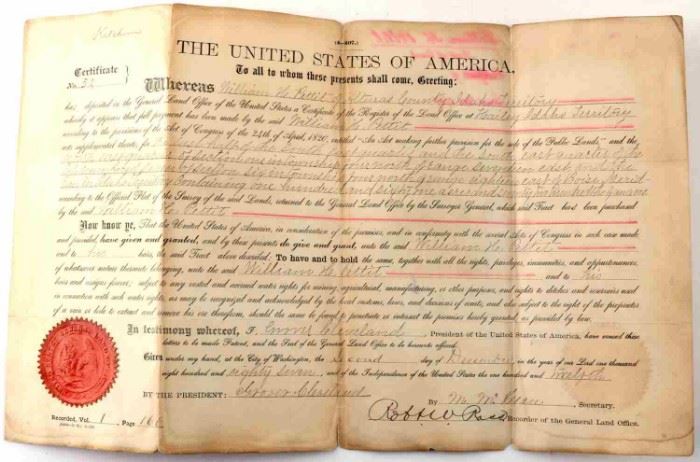 Ketchum
(4-407.)
THE UNITED STATES OF AMERICA,
To all to whom these presents shall come, Greeting:
Certificate
No. 52
Whereas William H. Pettit of Alturas County Idaho Territory
has deposited in the General Land Office of the United States a Certificate of the Register of the Land Office at Hailey Idaho Territory
whereby it appears that full payment has been made by the said William H. Pettit
according to the provisions of the Act of Congress of the 24th of April, 1820, entitled "An Act making further provision for the sale of the Public Lands," and the
acts supplemental thereto, for the east half of the south quarter and the south east quarter of the
quarter of section one in township four north of range seventeen east and the
of section six in township four north of range eighteen east of Boise Meridian
in Idaho Territory containing one hundred and eighty one acres and
according to the Official Plat of the Survey of the said Lands, returned to the General Land Office by the Surveyor General, which said Tract has been purchased
by the said William H. Pettit
Now know ye, That the United States of America, in consideration of the premises, and in conformity with the several Acts of Congress in such case made
and provided, have given and granted, and by these presents do give and grant, unto the said William H. Pettit
and to his heirs, the said Tract above described: To have and to hold the same, together with all the rights, privileges, immunities, and appurtenances,
of whatsoever nature thereunto belonging, unto the said William H. Pettit and to his
heirs and assigns forever; subject to any vested and accrued water rights for mining, agricultural, manufacturing, or other purposes, and rights to ditches and reservoirs used
in connection with such water rights, as may be recognized and acknowledged by the local customs, laws, and decisions of courts, and also subject to the right of the proprietor
of a vein or lode to extract and remove his ore therefrom, should the same be found to penetrate or intersect the premises hereby granted, as provided by law.
In testimony whereof, I, Grover Cleveland, President of the United States of America, have caused these
letters to be made Patent, and the Seal of the General Land Office to be hereunto affixed.
Given under my hand, at the City of Washington, the second day of December, in the year of our Lord one thousand
eight hundred and eighty seven, and of the Independence of the United States the one hundred and twelfth
BY THE PRESIDENT: Grover Cleveland
By M. McKean, Secretary.
Robt W Ross, Recorder of the General Land Office.
Recorded, Vol. 1, Page 160